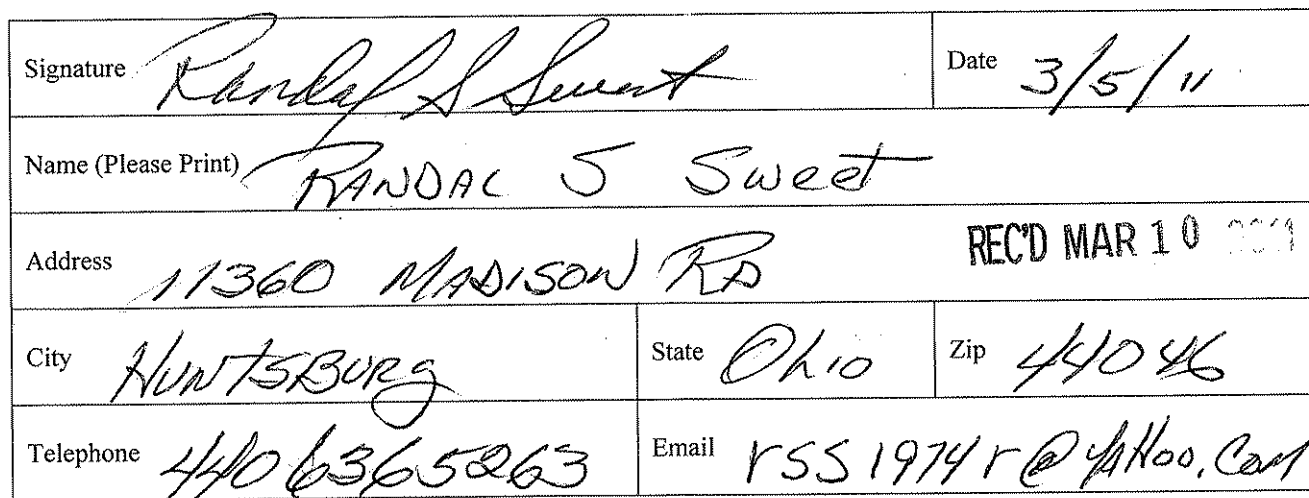 Signature Randal S Sweet Date 3/5/11
Name (Please Print) RANDAL S Sweet
Address 11360 MADISON RD REC'D MAR 10
City HUNTSBURg State Ohio Zip 44046
Telephone 4406365263 Email rss1974r@YAHoo.Com